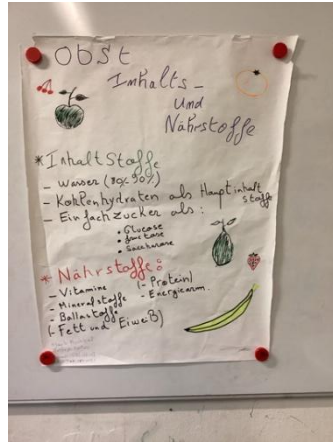 Obst
Inhalts-
und
Nährstoffe
* Inhaltstoffe
- Wasser (80% 90%)
- Kohlenhydraten als Hauptinhalt
stoffe
- Einfachzucker als:
• Glucose
• fructose
• Saccharose
* Nährstoffe:
- Vitamine (- Protein)
- Mineralstoffe - Energiearm.
- Ballastoffe
(- Fett und Eiweiß)